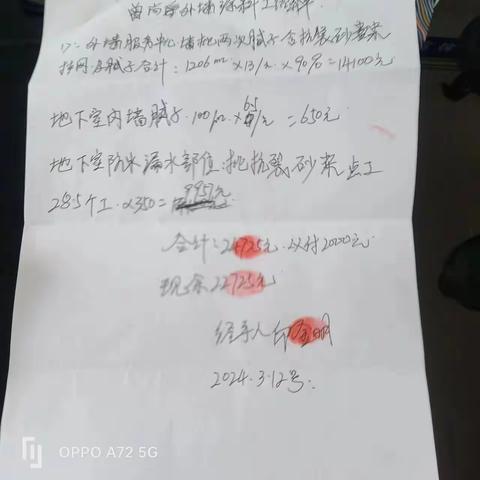 外墙涂料工程
17：外墙服务中心墙批两次腻子含抗裂砂浆
挂网.合计：1206m²×13/元×90%=14100元
地下室内墙腻子.100/m².×6.5/元=650元
地下室防水漏水部位.批抗裂砂浆点工
28.5个工.×350=9957元
合计：24725元.以付20000元
现余22725元
经手人
2024.3.12号：
OPPO A72 5G